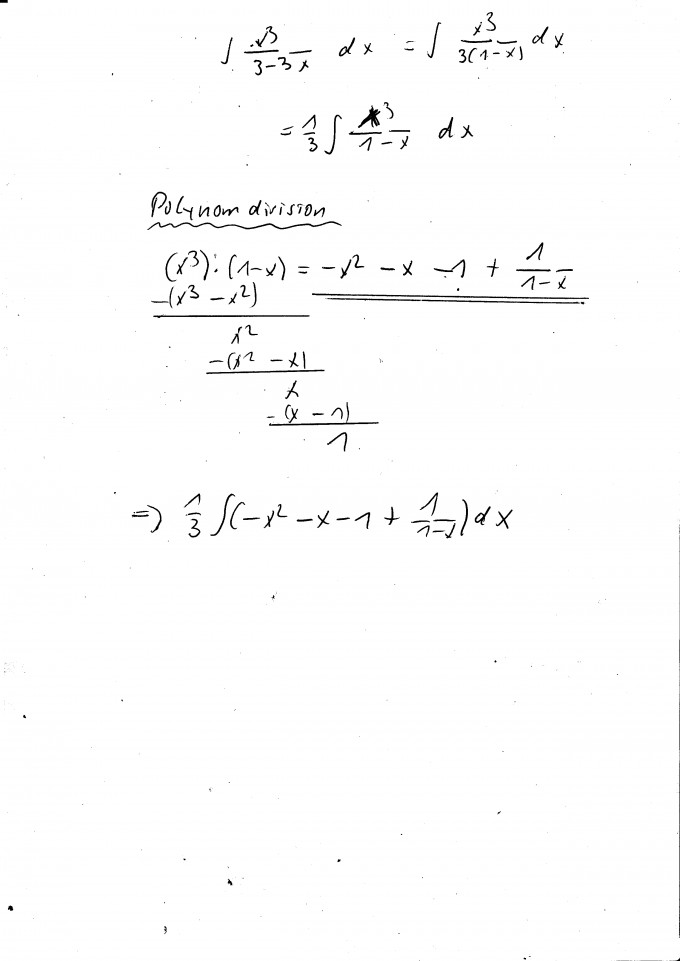 ∫ x³/(3-3x) dx = ∫ x³/(3(1-x)) dx
= 1/3 ∫ x³/(1-x) dx
Polynomdivision
(x³):(1-x) = -x² - x - 1 + 1/(1-x)
-(x³ - x²)
x²
-(x² - x)
x
-(x - 1)
1
=> 1/3 ∫(-x² - x - 1 + 1/(1-x)) dx